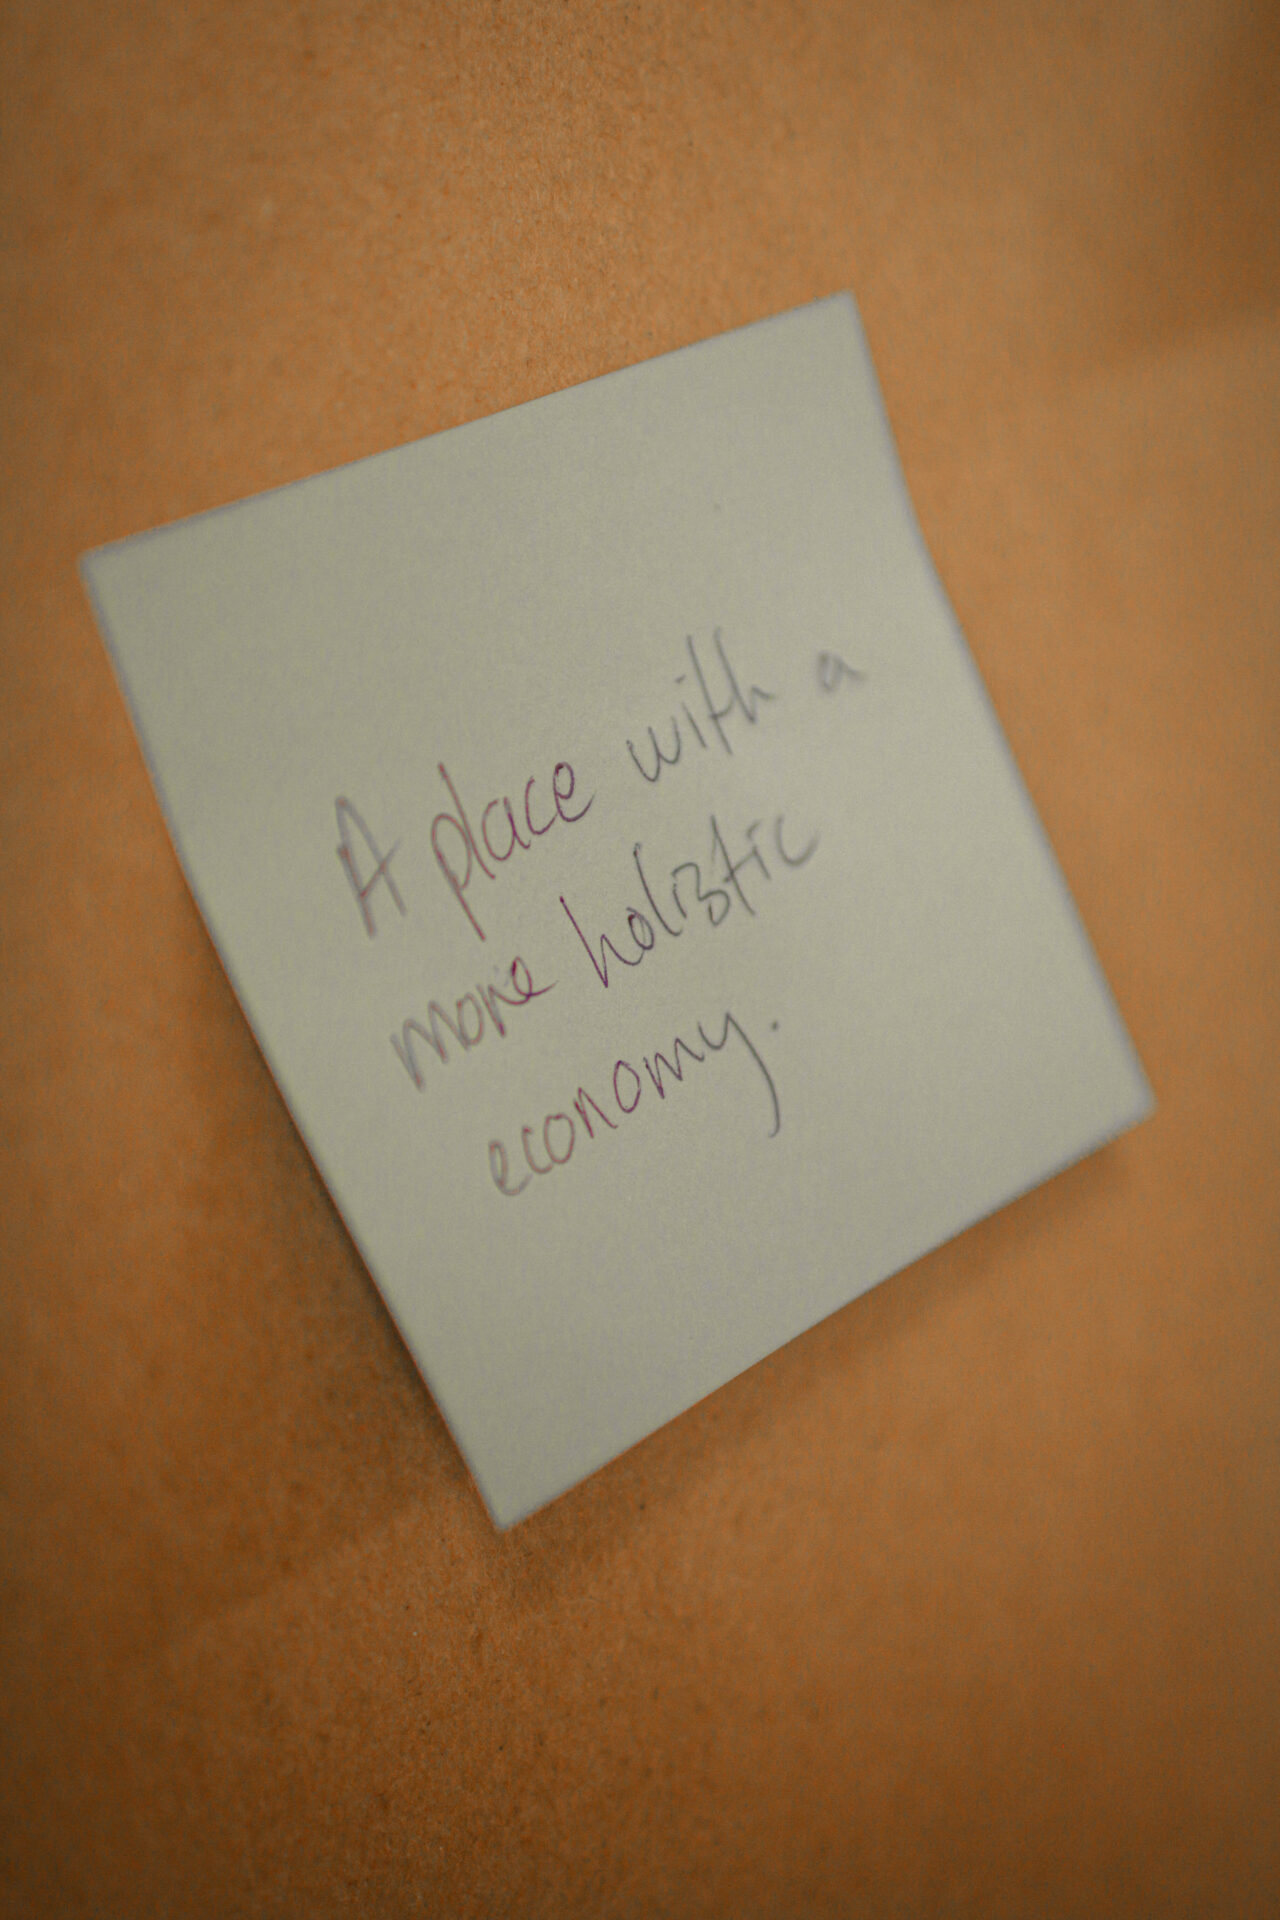 A place with a
more holistic
economy.